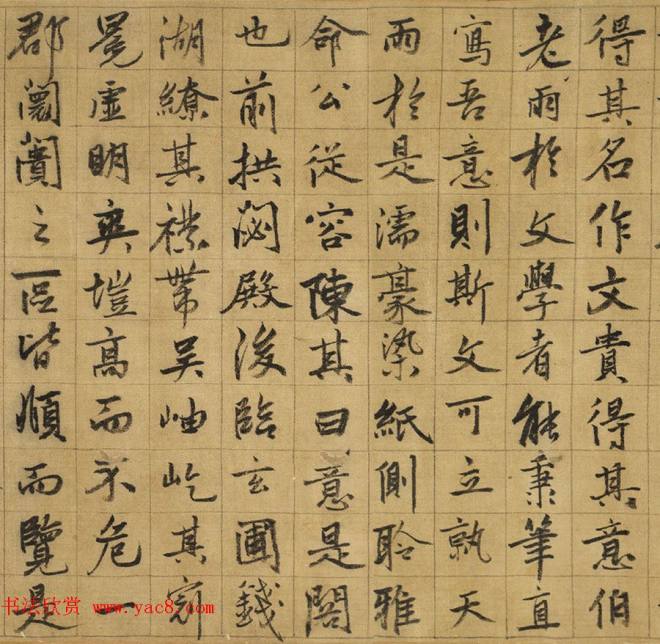 得其名作文貴得其意伯
老雨於文學者能秉筆直
寫吾意則斯文可立孰天
雨於是濡豪染紙側聆雅
命公從容陳其曰意是閣
也前拱閟殿後臨玄圃錢
湖繚其襟帶吴岫屹其
冕虚明爽塏高而不危一
郡闤闠之區皆順而覽是
书法欣赏 www.yac8.com